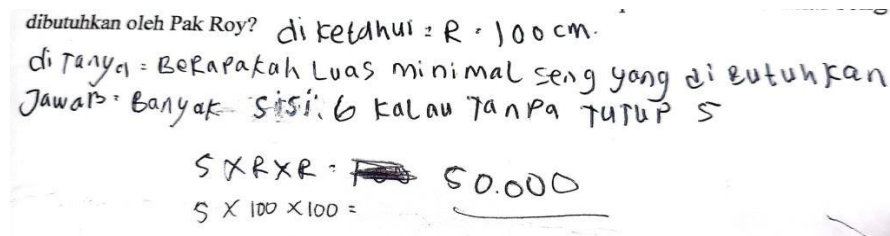 dibutuhkan oleh Pak Roy? diketahui : R = 100 cm.
di Tanya = Berapakah Luas minimal seng yang di butuhkan
Jawab = Banyak sisi: 6 kalau Tanpa Tutup 5
5 X R X R = 50.000
5 X 100 X 100 =